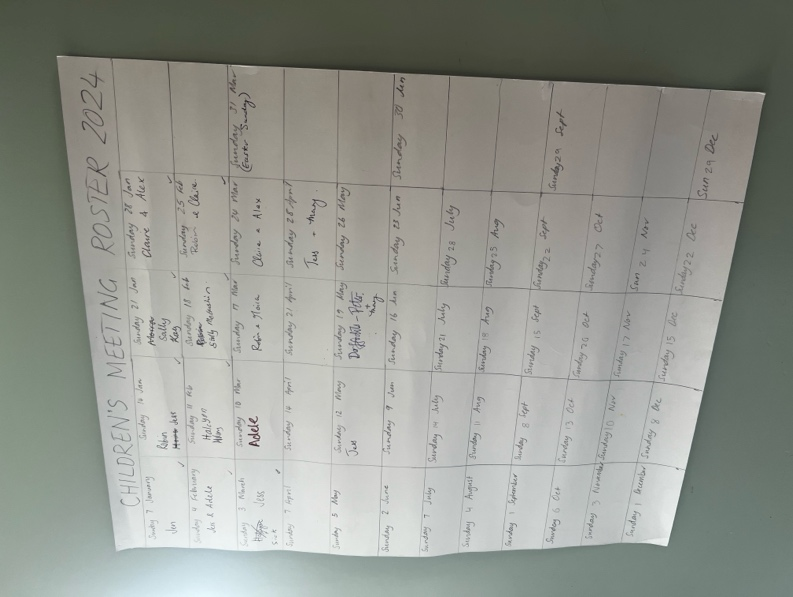 CHILDREN'S MEETING ROSTER 2024
Sunday 7 January
Jen
Sunday 14 Jan
Robin
Jess
Sunday 21 Jan
Sally
Ray
Sunday 28 Jan
Claire & Alex
Sunday 4 February
Jes & Adele
Sunday 11 Feb
Sunday 18 Feb
Sunday 25 Feb
Robin & Claire
Sunday 3 March
Jess
Sick
Sunday 10 Mar
Adele
Sunday 17 Mar
Sunday 24 Mar
Claire & Alex
Sunday 31 Mar
(Easter Sunday)
Sunday 7 April
Sunday 14 April
Sunday 21 April
Sunday 28 April
Jess +
Sunday 5 May
Sunday 12 May
Jess
Sunday 19 May
Sunday 26 May
Sunday 2 June
Sunday 9 Jun
Sunday 16 Jun
Sunday 23 Jun
Sunday 30 Jun
Sunday 7 July
Sunday 14 July
Sunday 21 July
Sunday 28 July
Sunday 4 August
Sunday 11 Aug
Sunday 18 Aug
Sunday 25 Aug
Sunday 1 September
Sunday 8 Sept
Sunday 15 Sept
Sunday 22 Sept
Sunday 29 Sept
Sunday 6 Oct
Sunday 13 Oct
Sunday 20 Oct
Sunday 27 Oct
Sunday 3 November
Sunday 10 Nov
Sunday 17 Nov
Sun 24 Nov
Sunday 1 December
Sunday 8 Dec
Sunday 15 Dec
Sunday 22 Dec
Sun 29 Dec